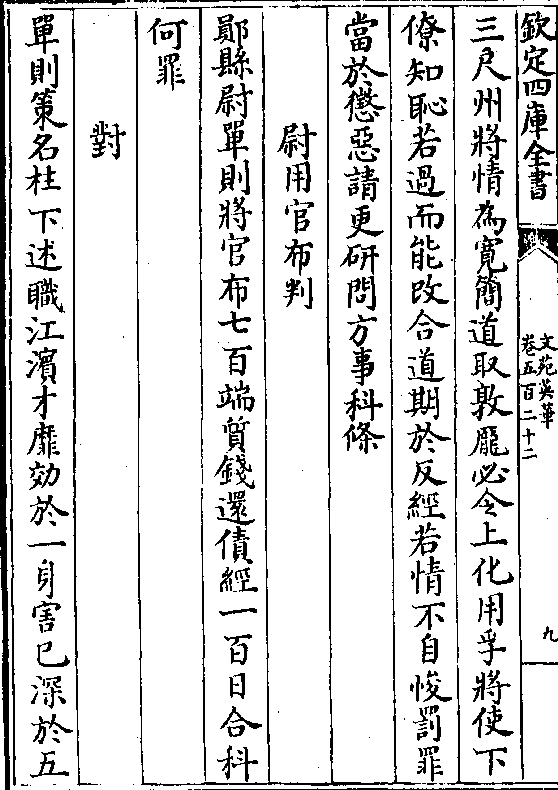 欽定四庫全書
文苑英華
卷五百二十二
九
三尺州將情為寛簡道取敦龎必令上化用孚將使下
僚知恥若過而能改合道期於反經若情不自悛罰罪
當於懲惡請更研問方事科條
尉用官布判
鄖縣尉單則將官布七百端質錢還債經一百日合科
何罪
對
單則策名柱下述職江濱才靡効於一身害已深於五